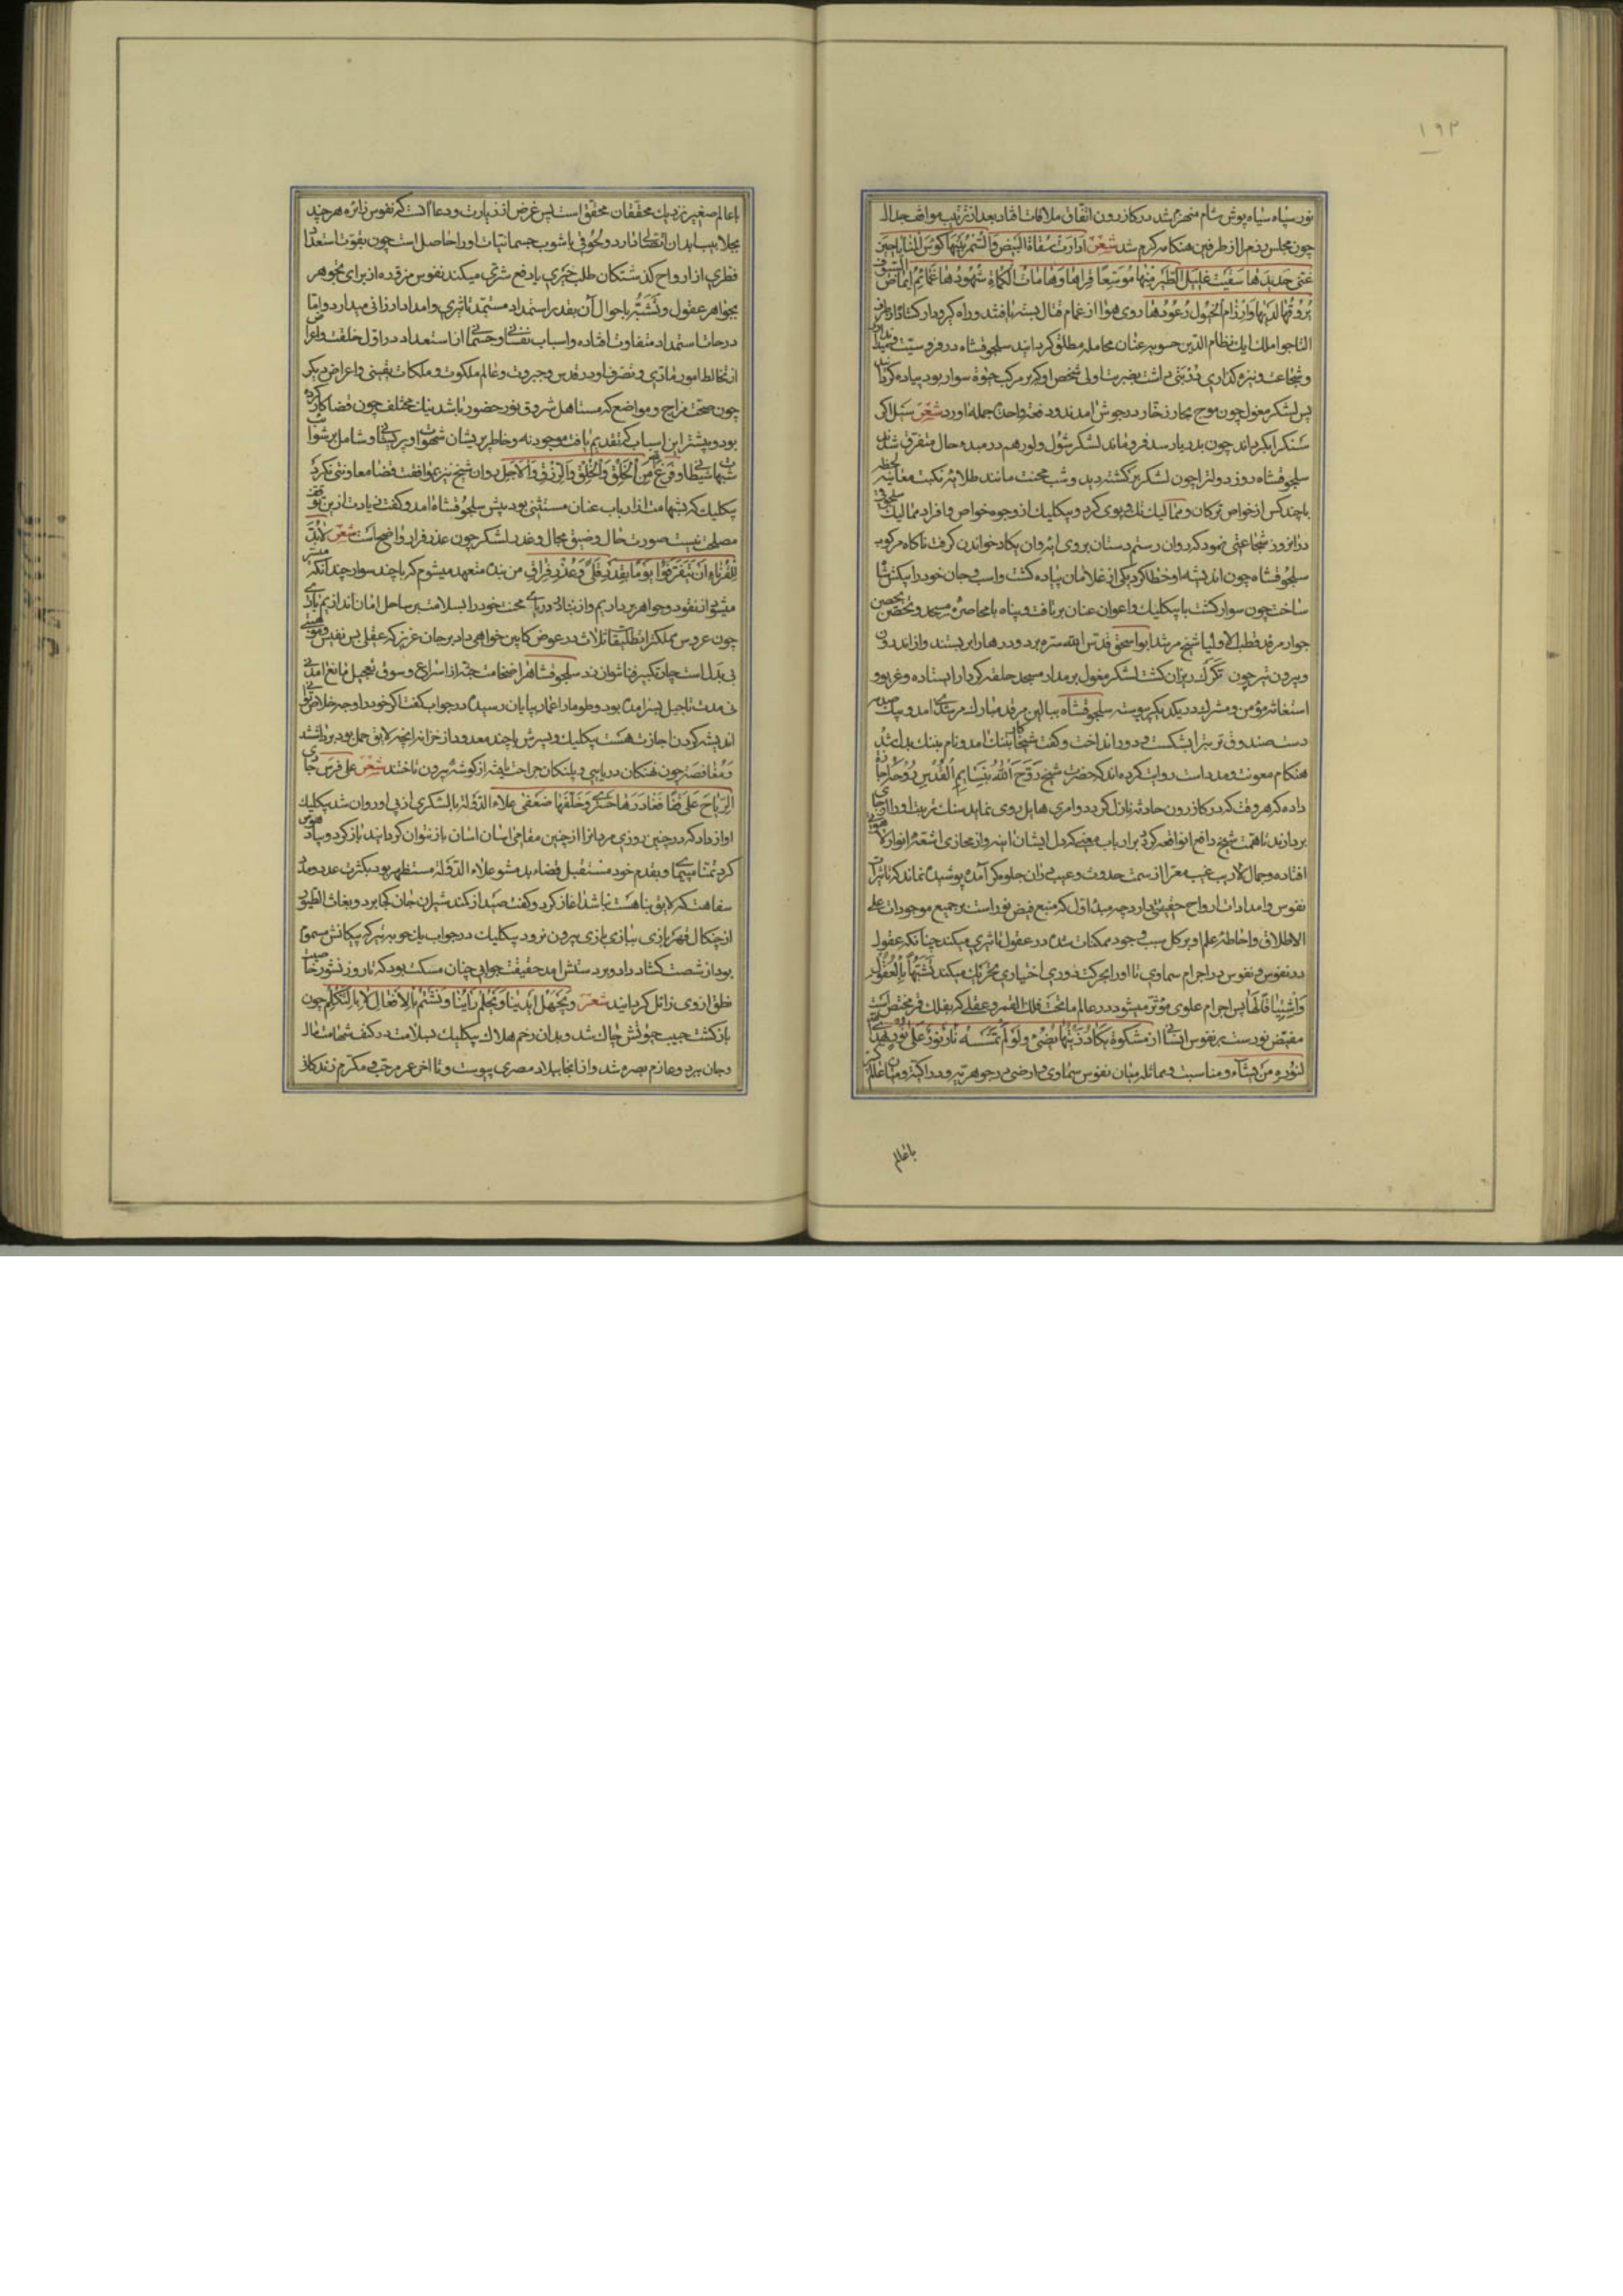 ۱۹۲
نور سپاه سیاه پوش شام منهزم شد در کازرون اتفاق ملاقات افتاد بعد از ترتیب مواقف جدال
چون مجلس رزم را از طرفین هنکامه کرم شد شعر ادارت سقاة البیض والسمر بینها کؤس المنایا حین
غنی حدیدها سقیت غلیل الطیر منها موسعا قراها وهامات الکماة شهودها غمائم ایماض السیوف
بروقها لدیها وارزام الخیول رعودها روی هوا از غمام قتال بسته یافتند وراه کر ودار کشاده از طرف
اتابک نظام الدین حسویه عنان محامله مطلق کردانید سلجوقشاه در فروسیت
وشجاعت ونیزه کذاری داشت بضربت اولی شخص او که بر مرکب حیوة سوار بود پیاده کردانید
پس لشکر مغول چون موج بحار زخار در جوش امدند ودفعة واحدة حمله اورد شعر سیل اکر
سنک را بکرداند چون بدریا رسد فرو ماند لشکر شول ولور هم در مبدء حال متفرق شدند
سلجوقشاه روز دولت را چون لشکر برکشته دید وشب محنت مانند طلایه نکبت معاینه
با چند کس از خواص ترکان وممالیک تک وپوی کرد وبیکلیک از وجوه خواص وافراد ممالیک سلجوقی
در انروز شجاعتی نمود که روان رستم دستان بروی ان یکاد خواندن کرفت ناکاه مرکوب
سلجوقشاه چون اندیشه او خطا کرد یکی از غلامان پیاده کشت واسب وجان خود را پیکش
ساخت چون سوار کشت با بیکلیک واعوان عنان برتافت وپناه با محاصره مسجد وتحصن
جوار مرقد قطب الاولیا شیخ مرشد ابو اسحق قدس الله سره برد ودرها را بربستند واز اندرون
وبیرون تیر چون تکرک ریزان کشت لشکر مغول بر مدار مسجد حلقه کردار ایستاده وغریو و
استغاثه مؤمن ومشرک در یکدیکر پیوسته سلجوقشاه ببالین مرقد مبارک مرشدی امد وبیک صدمه
دست صندوق تربت را بشکست ودور انداخت وکفت شیخا تنک امد ونام بننک بدل شد
هنکام معونت ومددست روایت کرده اند که حضرت شیخ روح الله بنسایم القدس روحه اجازت
داده که هر وقت که در کازرون حادثه نازل کردد وامری هایل روی نماید سنک تربت او را
بردارند تا همت شیخ دافع ان واقعه کردد بر ارباب معنی که دل ایشان ائینه واز مجازی اشعه انوار
افتاده وجمال لاریب غیب معرا از سمت حدوث وعیب دران جلوه کر آمده پوشیده نماند که تاثرات
نفوس وامدادات ارواح حقیقتی دارد چه مبدء اول که منبع فیض نور است بر جمیع موجودات علی
الاطلاق واحاطه علم او بر کل سبب وجود ممکنات شده در عقول تاثیری میکند چنانکه عقول
در نفوس ونفوس در اجرام سماوی تا او را بحرکت دوری اختیاری تحریک میکند تشبها بالعقول
واشتیاقا لها پس اجرام علوی مؤثر میشود در عالم ما تحت فلک القمر وعقلی که بفلک قمر مختص است
مفیض نورست بر نفوس انسانی از مشکوة یکاد زیتها یضیء ولو لم تمسسه نار نور علی نور یهدی الله
لنوره من یشاء ومناسبت ومماثله میان نفوس سماوی وارضی در جوهریت ودراکیة ومیان عالم
باعالم
باعالم صغیر نزدیک محققان محقق است پس غرض از زیارت ودعا آنست که نفوس زائره هر چند
بجلابیب ابدان اتصالی دارد ولحوقی باشوب جسمانیات او را حاصل است چون بقوت استعداد
فطری از ارواح کذشتکان طلب خیری یا دفع شری میکند نفوس مزوره از برای تجوهر
بجواهر عقول وتشبه باحوال آن بقدر استمداد مستمد تاثیری وامداد ارزانی میدارد واما
درجات استمداد متفاوت افتاده واسباب نفسانی وجسمانی از استعداد در اول خلقت واعراض
از تخالط امور مادی وتصرف او در قدس وجبروت وعالم ملکوت وملکات یقینی واعراض دیکر
چون صحت مزاج ومواضع که مستاهل شروق نور حضور باشد نیک مختلف چون قضا کار کرده
بود وبیشتر این اسباب که تقدیم یافت موجود نه وخاطر پریشان شهوات او بر کیفیات وشامل بر شوائب
شبهات شیطانی وفرغ من الخلق والخلق والرزق والاجل روان شیخ نیز بموافقت قضا معاونتی نکرد
بیکلیک که بشهامت از ارباب عنان مستثنی بود پیش سلجوقشاه امد وکفت زیادت ازین توقف
مصلحت نیست صورت حال وضیق مجال وغدر لشکر چون عذر فرار واضح است شعر لابد
للقرناء ان یتفرقوا یوما بقدر قلی وعذر فراق من بنده متعهد میشوم که با چند سوار چندانکه
میسر از نقود وجواهر برداریم واز تنادی دریای محنت خود را بسلامت بر ساحل امان اندازیم
چون عروس مملکت را تطلیقات ثلاث در عوض کابین خواهی داد بر جان عزیز که عقلی پس نفیس
بی بدل است چار تکبیر فنا نتوان زد سلجوقشاه را ضخامت جثه از اسراع وسوق تعجیل مانع امد
نی مدت تاجیل بسر امده بود وطومار اعمار بپایان رسیده در جواب کفت اکر خود را وجه خلاص توانی
اندیشه کردن اجازت هست بیکلیک وپسرش با چند معدود از خزانه انچه لایق حمل بود برداشتند
ومغافصة چون نهنکان دریایی وپلنکان جراحت یافته از کوشه بیرون تاختند شعر علی فرس جاری
الریاح علی قفا فغادرها حسری وخلفها ضعفی علاء الدوله با لشکری از پی او روان شد بیکلیک
اواز داد که در چنین روزی مردان را از چنین مقامی اسان اسان باز نتوان کردانید باز کرد وباد هوس
کرد تمنا مپیما وبقدم خود مستقبل قضاء بد مشو علاء الدوله مستظهر بود بکثرت عدد ومدد
سفاهت که لایق پادشاهان نباشد آغاز کرد وکفت صید از کمند شیران جان کجا برد وبغاث الطیور
از چنکال قهر بازی ببازی بازی بیرون نرود بیکلیک در جواب یک چوبه تیر که پیکانش مسموم
بود از شصت کشاد داد وبر دستش امد حقیقت جوابی چنان مسکت بود که تا روز نشور خاصیت
نطق از وی زائل کردانید شعر وتجهل ایدینا ویحلم راینا ونشتم بالافعال لا بالتکلم چون
بازکشت جیب جوشش چاک شد وبدان زخم هلاک بیکلیک بسلامت در کنف شهامت مال
وجان ببرد وعازم بصره شد واز انجا ببلاد مصری پیوست وتا اخر عمر مرجب ومکرم زندکانی